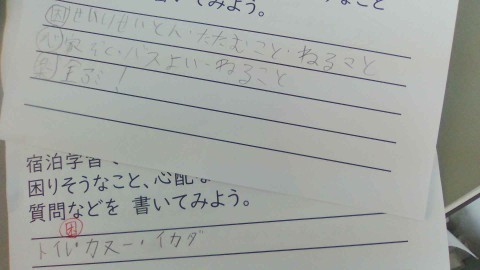 書いてみよう。
困 せいりせいとん・たたむこと・ねること
心 家・バスよい・ねること
全部!
宿泊学習
困りそうなこと、心配な
質問などを 書いてみよう。
困
トイレ・カヌー・イカダ